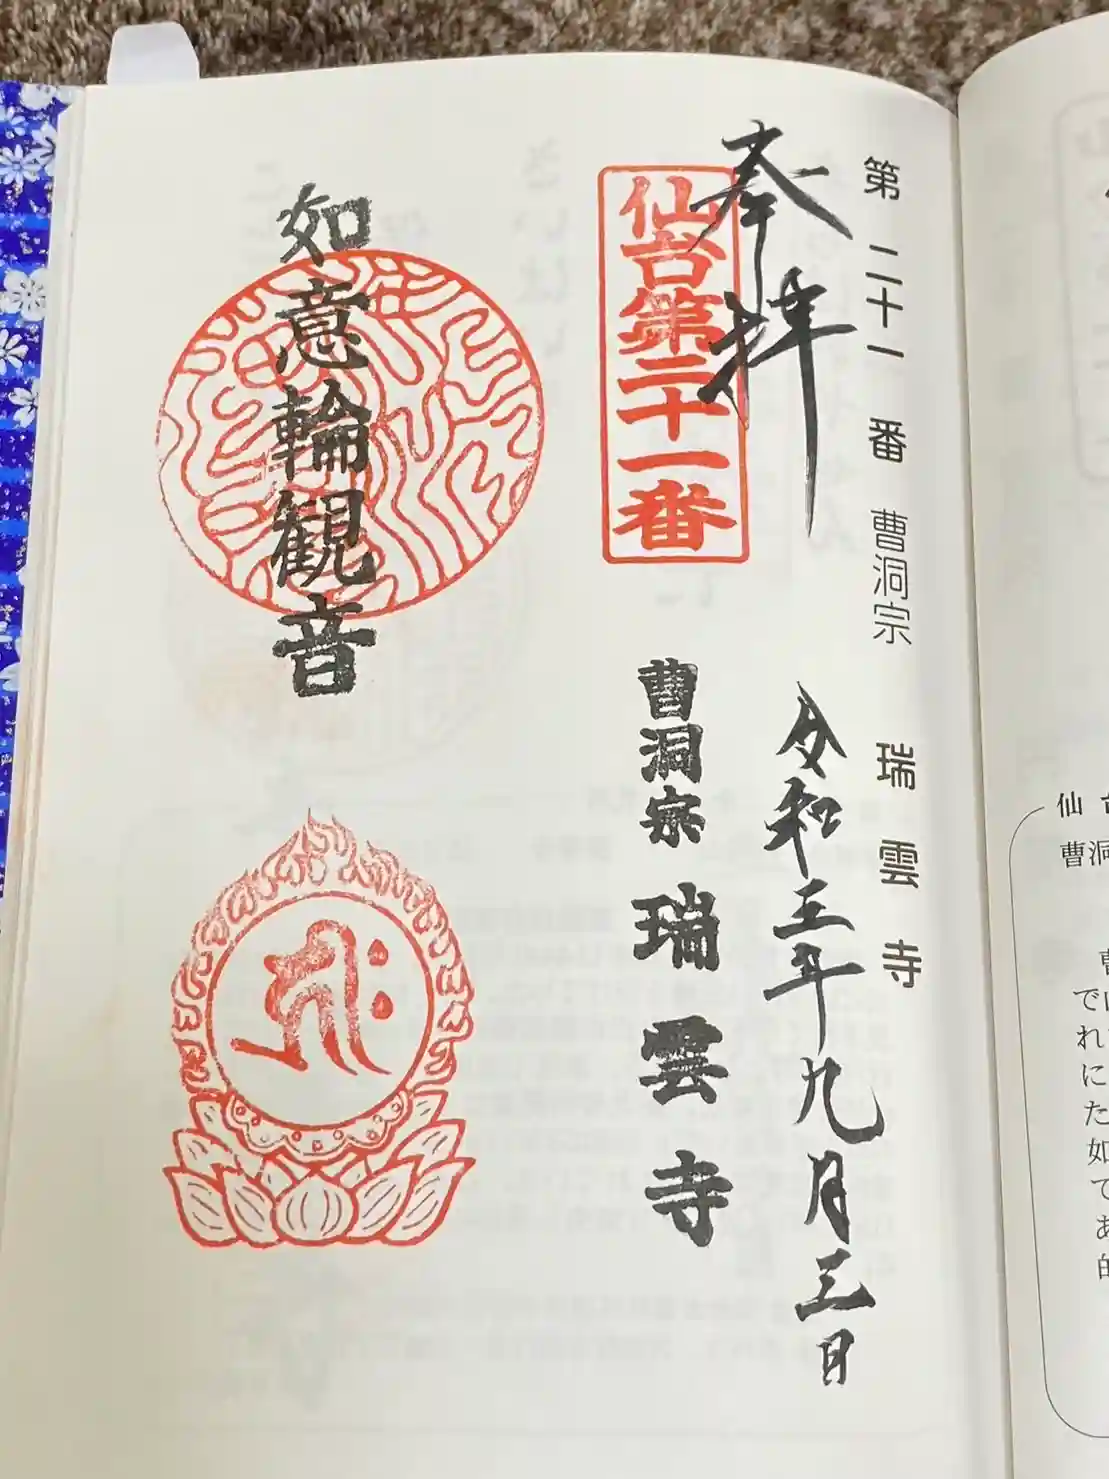 第二十一番 曹洞宗 瑞雲寺
奉拝
令和三年九月三日
仙台第二十一番
曹洞宗 瑞雲寺
如意輪観音
仙台
曹洞
で
れ
に
た
如
て
あ
的